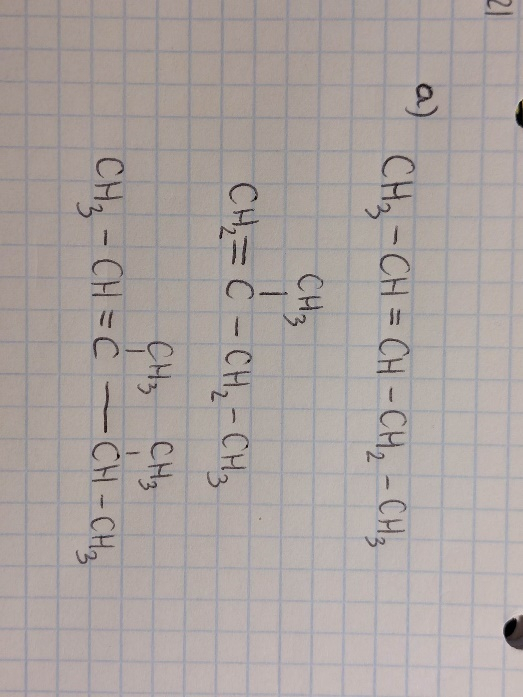 21
a) CH₃ – CH = CH – CH₂ – CH₃
CH₃
|
CH₂ = C – CH₂ – CH₃
CH₃ CH₃
| |
CH₃ – CH = C — CH – CH₃